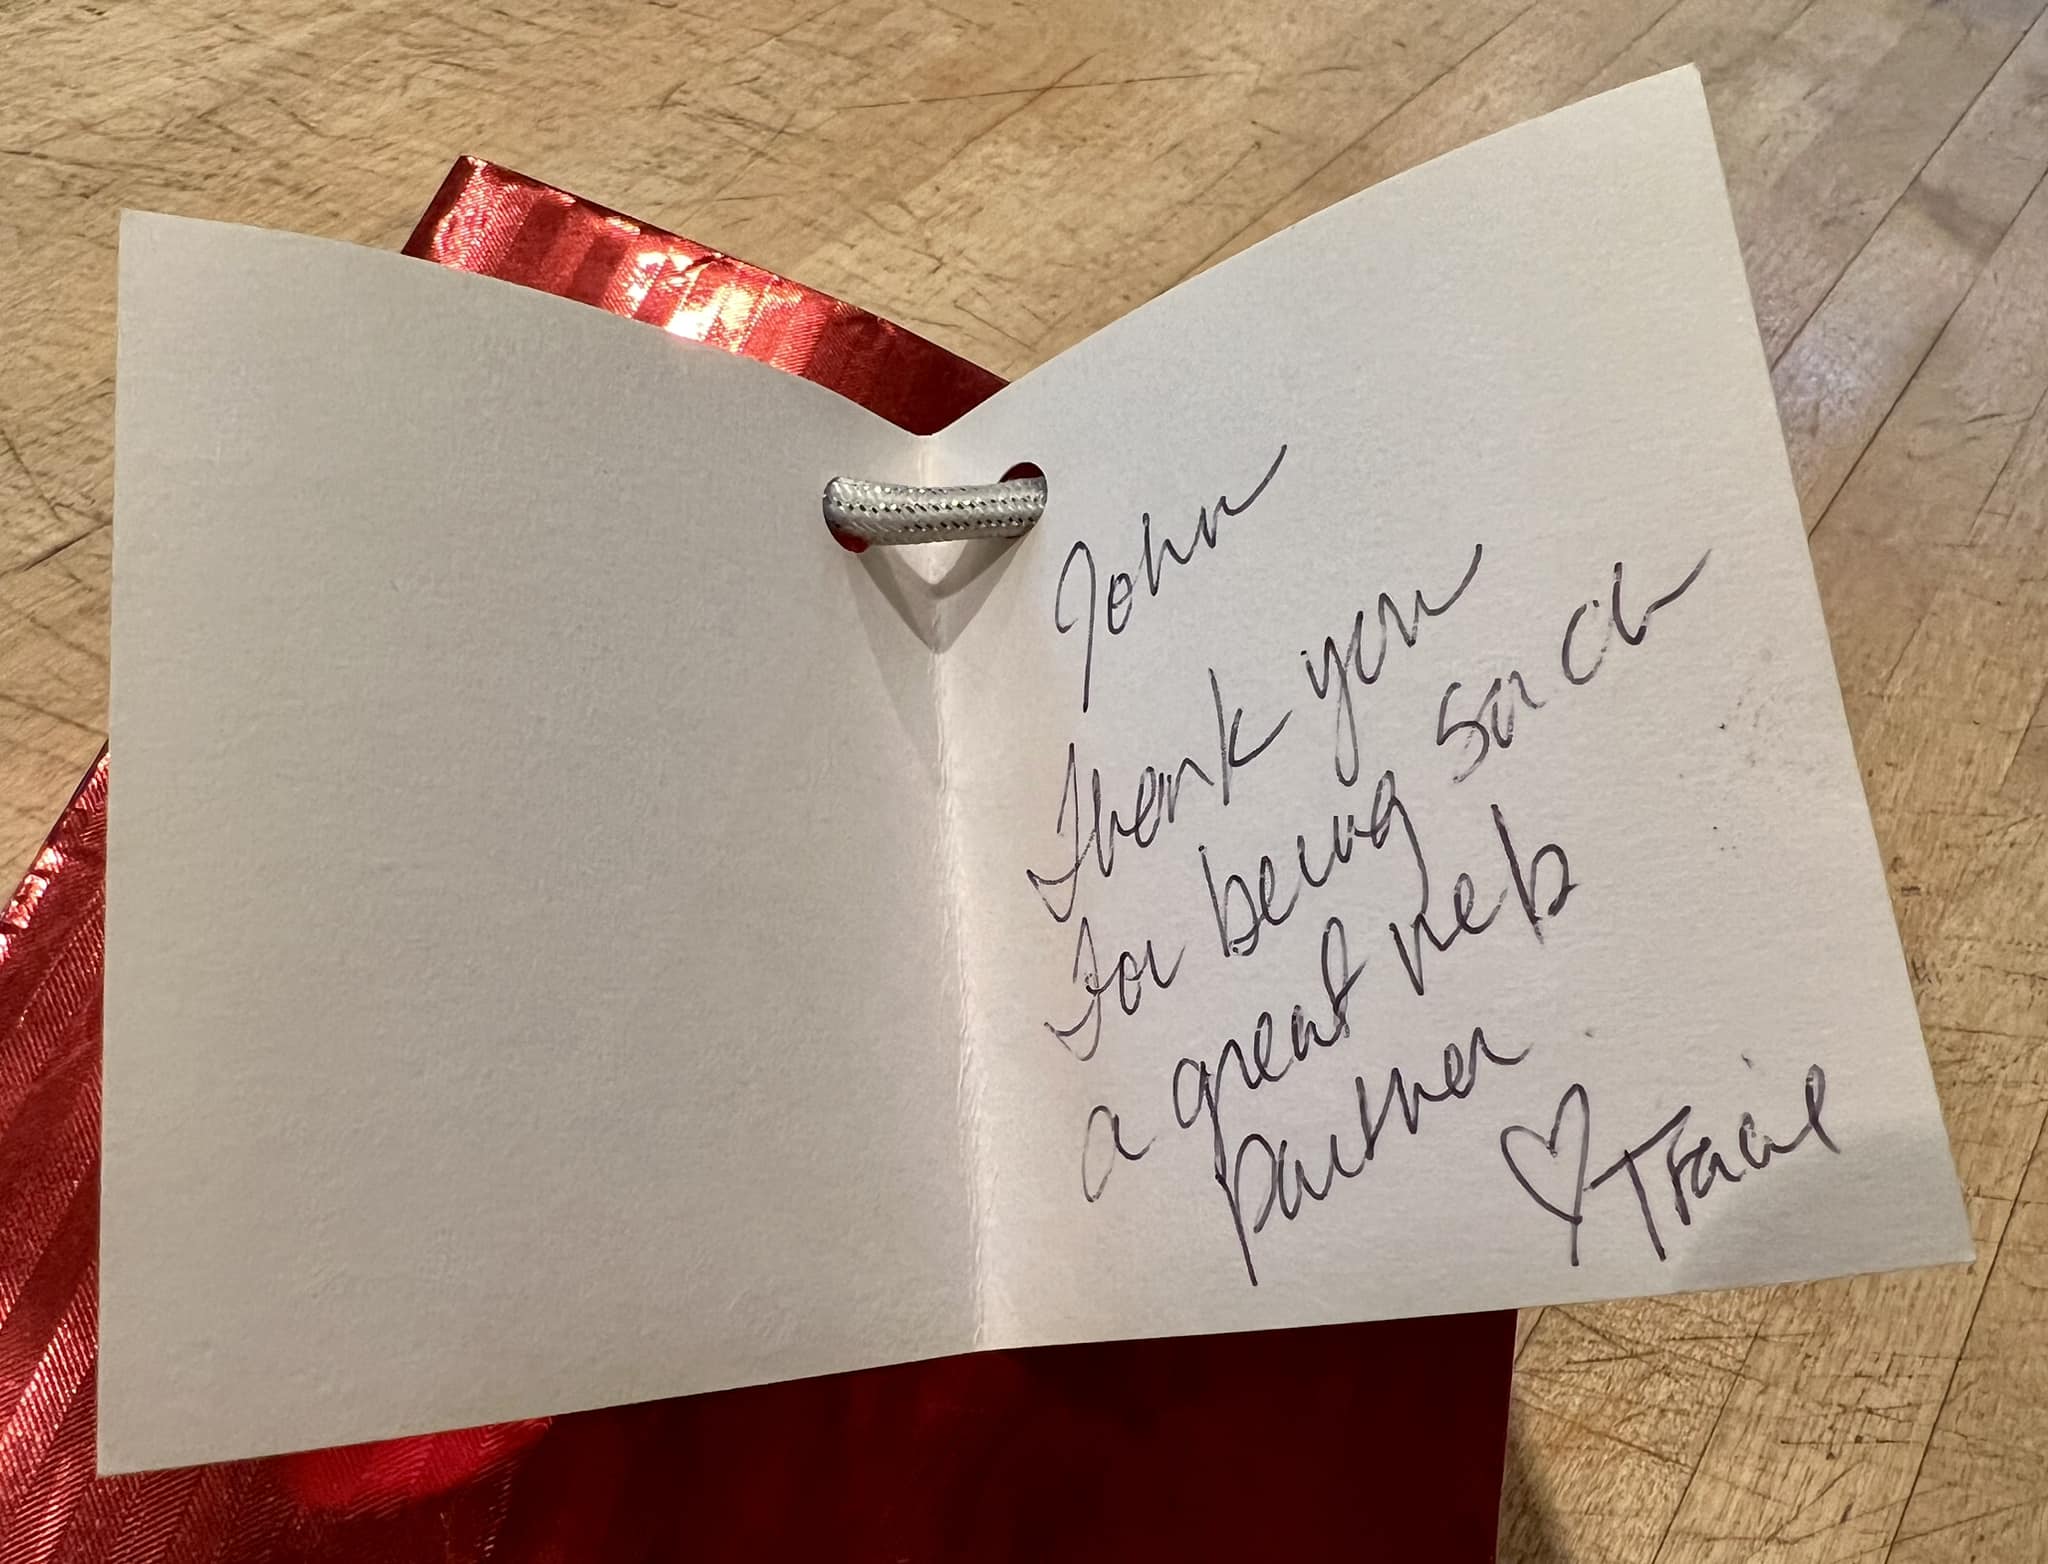 John
Thank you
for being such
a great web
partner
♡ Tracie